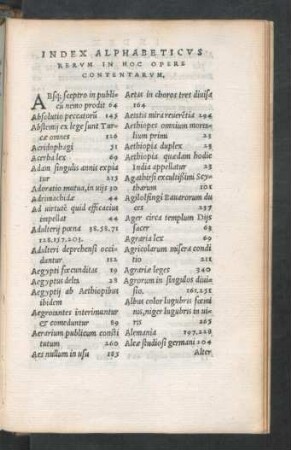 INDEX ALPHABETICVS
RERVM IN HOC OPERE
CONTENTARVM,
ABsq; sceptro in publi-
cũ nemo prodit 64
Absolutio peccatorũ 145
Abstemij ex lege sunt Tur-
cæ omnes 126
Acridophagi 51
Acerba lex 69
Adam singulis annis expia
tur 215
Adoratio mutua, in uijs 30
Adrimachidæ 44
Ad uirtutē quid efficacius
impellat 44
Adulterij pœna 38.58.71
128.157.203.
Adulteri deprehensi occi-
dantur 112
Aegypti fœcunditas 19
Aegyptus delta 28
Aegyptij ab Aethiopibus
ibidem
Aegrotantes interimuntur
et comeduntur 69
Aerarium publicum consti
tutum 260
Aes nullum in usu 183
Aetas in choros tret diuisa
104
Aetatis mira reuerētia 294
Aethiopes omnium morta-
lium primi 25
Aethiopia duplex 25
Aethiopia quædam hodie
India appellatur 23
Agathirsi excultißimi Scy-
tharum 101
Agilolfingi Bauarorum du
ces 257
Ager circa templum Dijs
sacer 63
Agraria lex 69
Agricolarum misera condi
tio 211
Agrariæ leges 340
Agrorum in singulos diui-
sio. 161.251
Albus color lugubris fœmi
nis, niger lugubris in ui-
ris 265
Alemania 197.220
Aleæ studiosi germani 104
Alter